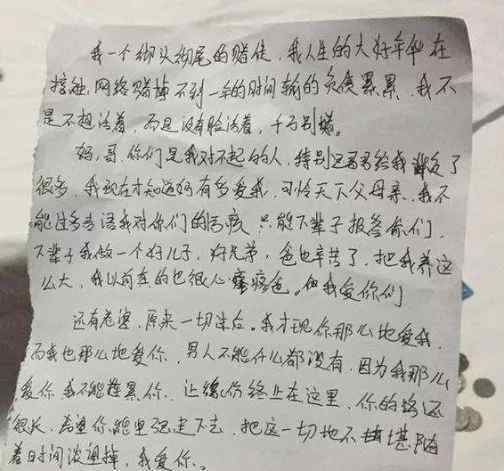 我一个彻头彻尾的赌徒,我人生的大好年华在
接触网络赌博不到一年的时间输的负债累累,我不
是不想活着,而是没有脸活着,千万别学。
妈,哥,你们是我对不起的人,特别是哥哥给我了
很多,我现在才知道妈有多爱我,可怜天下父母亲,我不
能过多言语我对你们的,只能下辈子报答你们,
下辈子我做一个好儿子,好兄弟,爸也辛苦了,把我养这
么大,我以前真的也很心疼爸。但我爱你们
还有老婆,原来一切过后。我才现你那么地爱我,
而我也那么地爱你,男人不能什么都没有,因为我那么
爱你我不能连累你,让缘份终止在这里,你的路还
很长,希望你能坚强走下去,把这一切地不堪随
着时间淡望掉,我爱你。